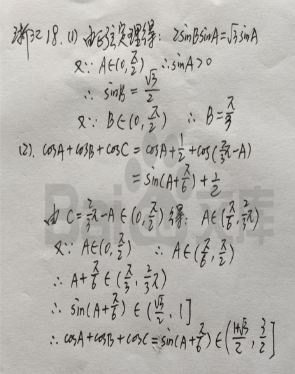 浙江18.(1) 由正弦定理得: 2sinBsinA=√3sinA
又∵A∈(0,π/2) ∴sinA>0
∴ sinB=√3/2
又∵B∈(0,π/2) ∴B=π/3
(2). cosA+cosB+cosC=cosA+1/2+cos(2/3π-A)
=sin(A+π/6)+1/2
由C=2/3π-A∈(0,π/2)得: A∈(π/6,2/3π)
又∵A∈(0,π/2) ∴A∈(π/6,π/2)
∴A+π/6∈(π/3,2/3π)
∴sin(A+π/6)∈(√3/2,1]
∴cosA+cosB+cosC=sin(A+π/6)∈(1+√3/2,3/2]
Bai 文库